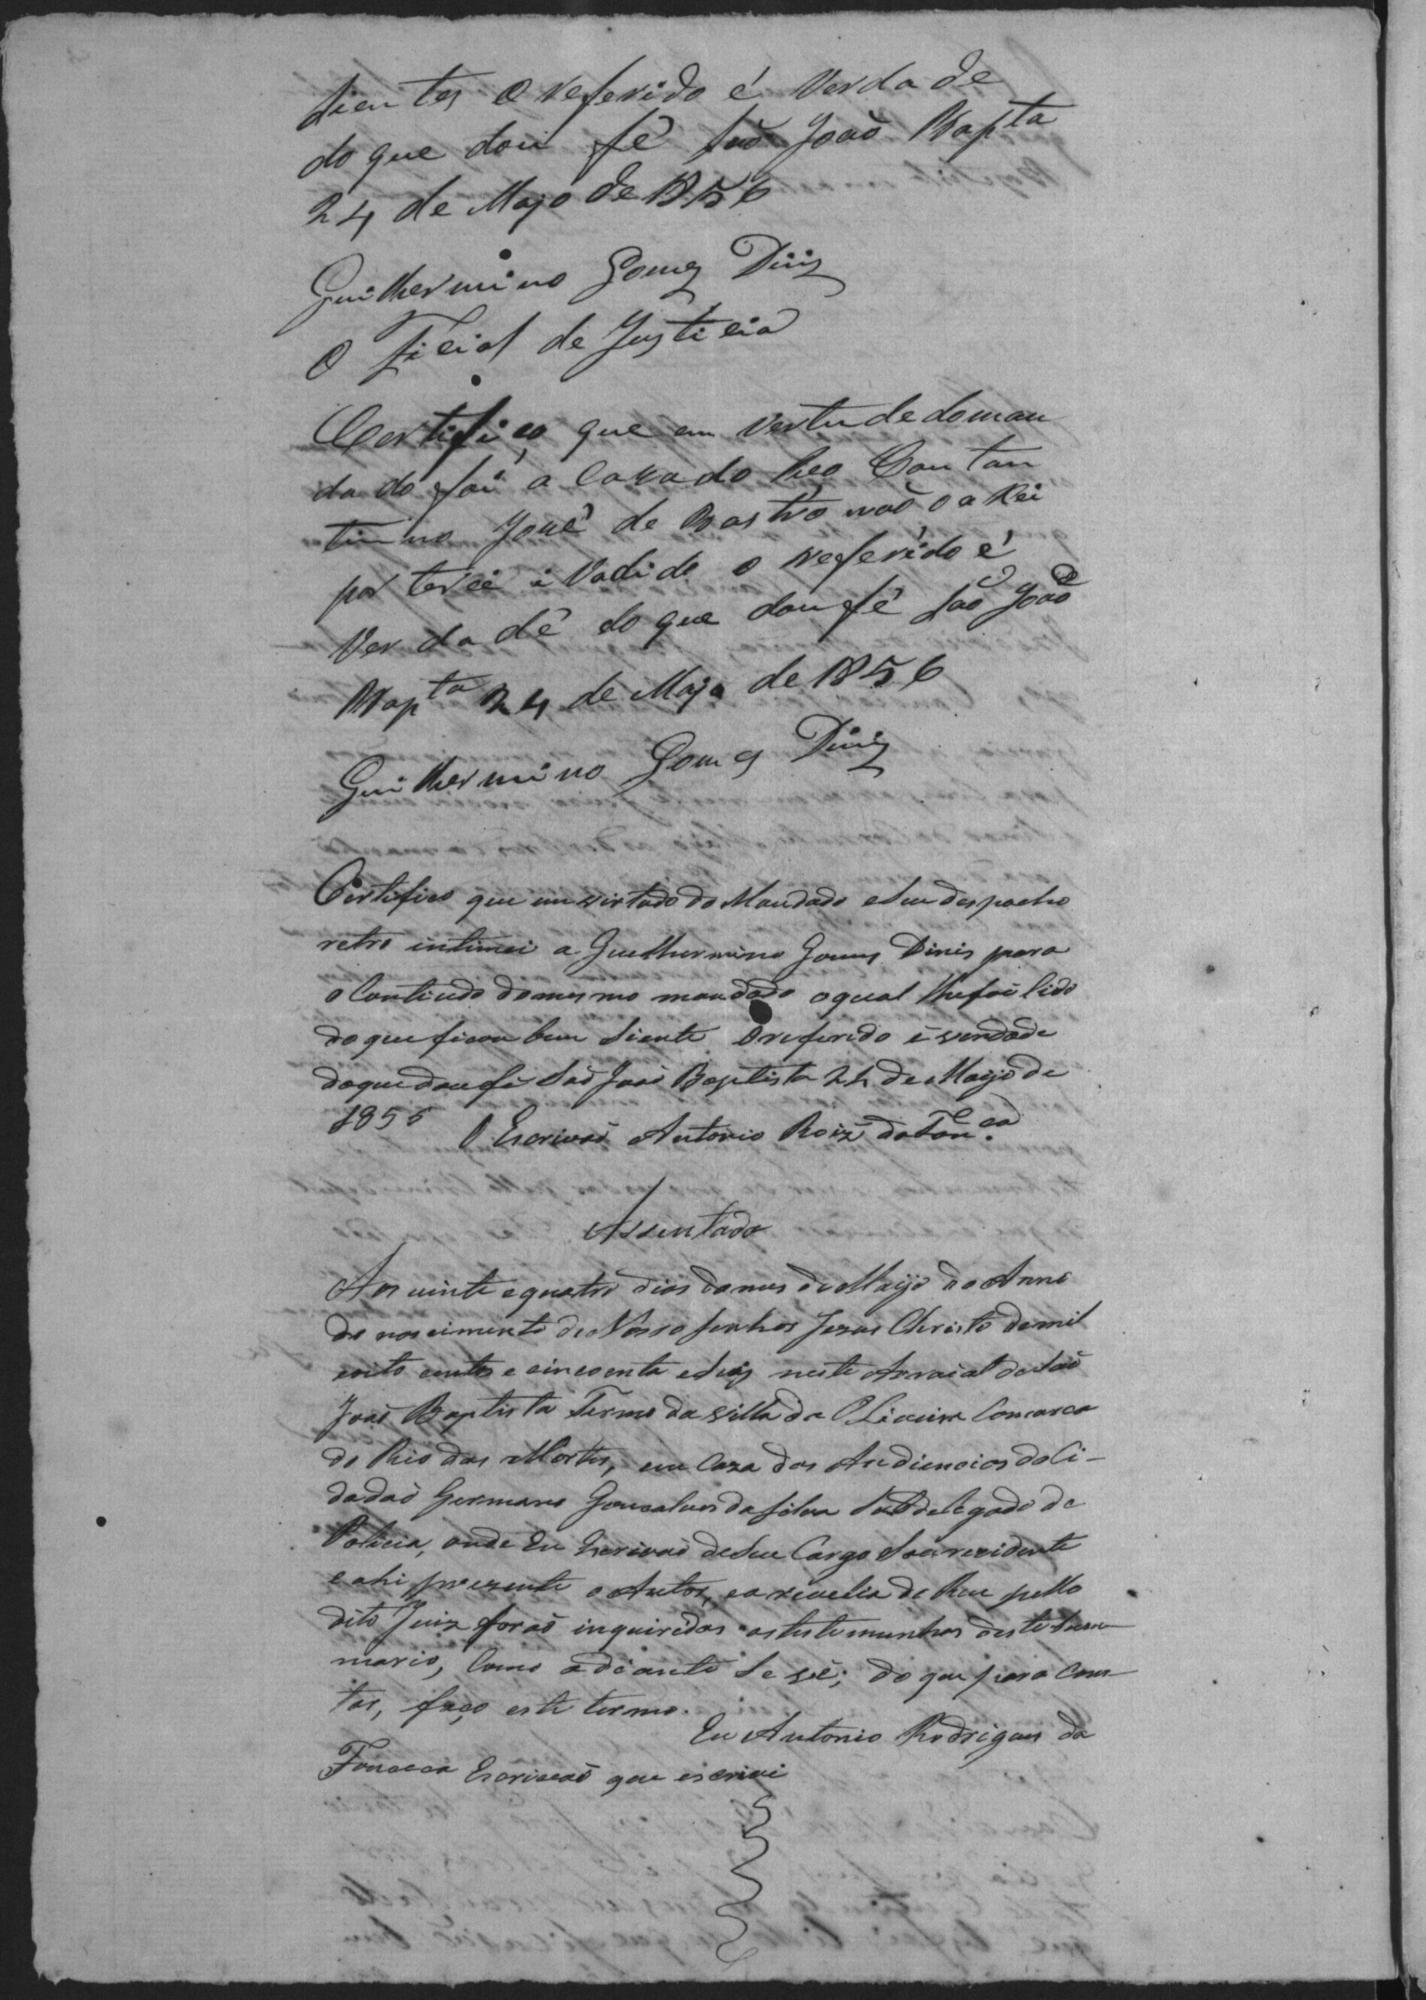 sientes O referido é Verdade
do que dou fé São João Bapta
24 de Majo de 1856
Guilhermino Gomes Diniz
O Ficial de Justicia
Certifico que em vertude do man
dado foi a Caza do Reo Constan
tino José de Bastro não o a xei
por ter ci i vadido o referido é
Verdadê do que dou fé São João
Bapta 24 de Majo de 1856
Guilhermino Gomes Diniz
Certifico que em virtude do Mandado e Seu despacho
retro intimei a Guilhermino Gomes Dinis para
o Contiudo do mesmo mandado o qual lhe foi lido
do que ficou bem Siente O referido é verdade
do que dou fé São João Baptista 24 de Maijo de
1856 O Escrivaõ Antonio Roiz da Fonca
Assentada
Aos vinte e quatro dias do mes de Maijo do Anno
do nascimento de Nosso Senhor Jezus Christo de mil
oito centos e cincoenta e Seis neste Arraial de Saõ
Joaõ Baptista Termo da Villa de Oliveira Comarca
do Rio das Mortes, em Caza das Audiencias do Ci-
dadaõ Germano Gonsalves da Silva Subdelegado de
Policia, onde Eu Escrivaõ de Seu Cargo Sou rezidente
e ahi prezente o Autor, e a revelia do Reu pello
dito Juiz foraõ inquiridas as testemunhas deste Sum
mario, Como adiante Se vê; do que para Cons
tar, faço este termo.
Eu Antonio Rodrigues da
Fonseca Escrivaõ que escrivi